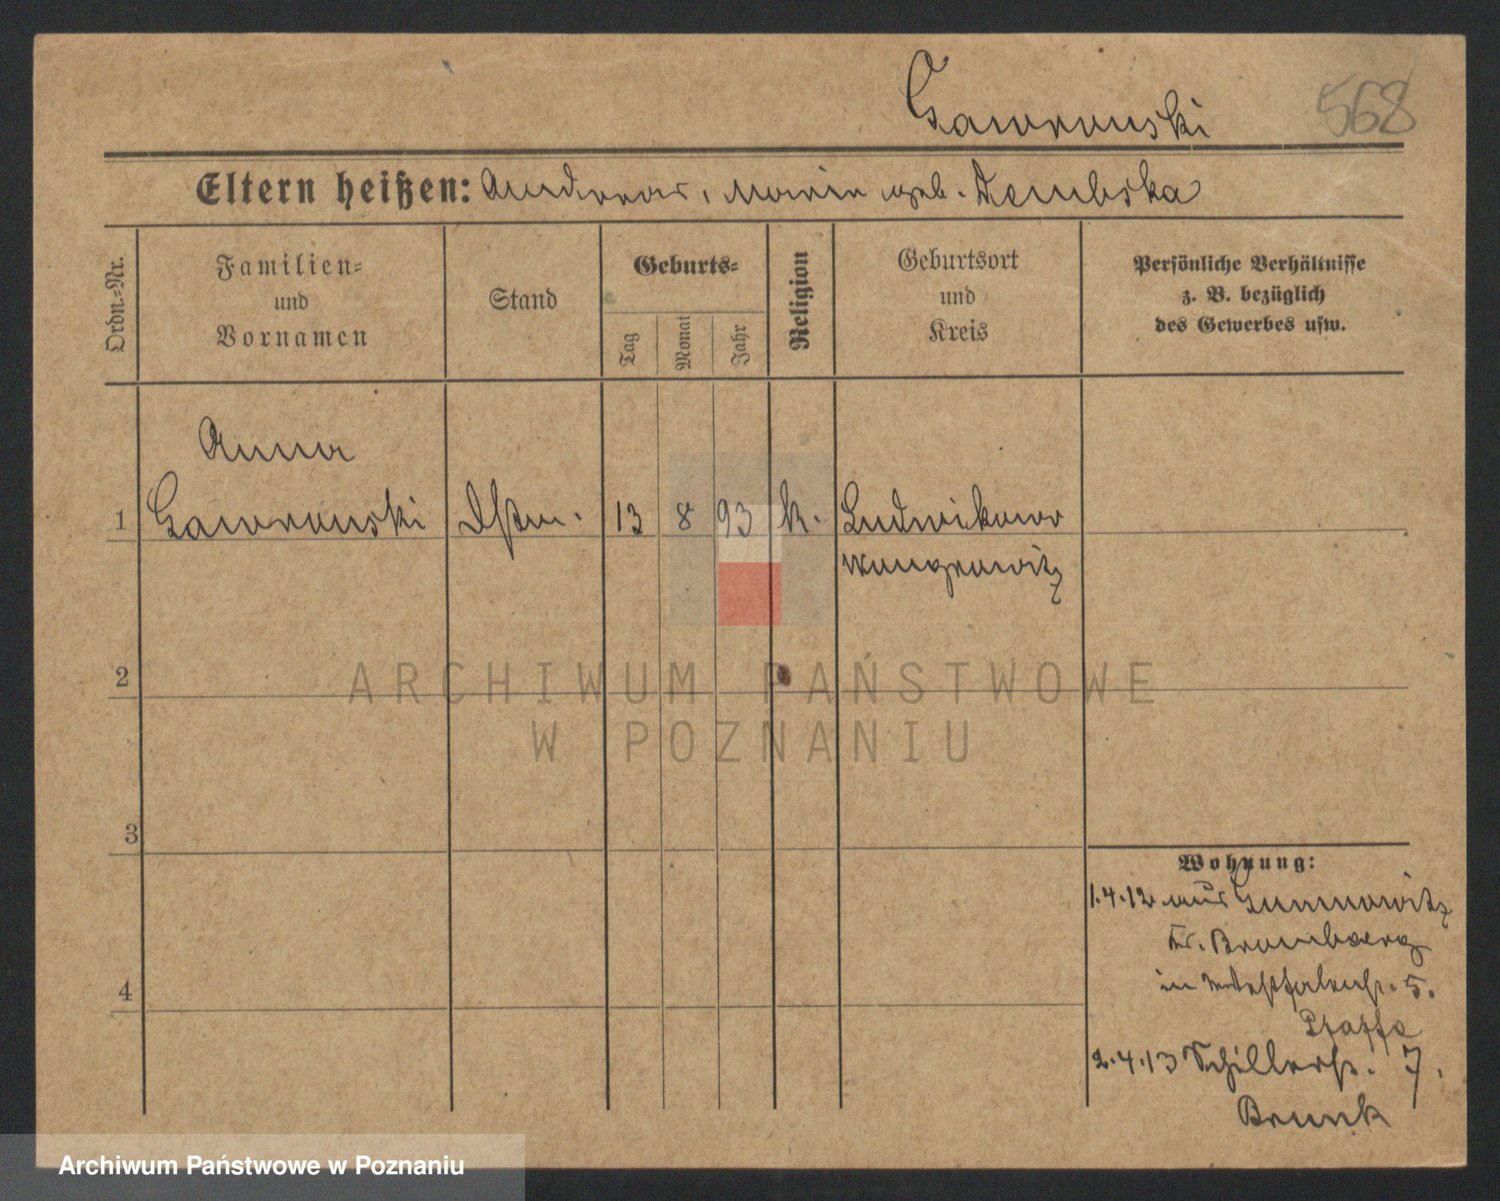 Gaworonski
568
Eltern heißen: Andreas, Marie geb. Dembska
Ordn.-Nr.
Familien-
und
Vornamen
Stand
Geburts-
Tag
Monat
Jahr
Religion
Geburtsort
und
Kreis
Persönliche Verhältnisse
z. B. bezüglich
des Gewerbes usw.
Anna
1 Gaworonski
13 8 93 k. Ludwikowo
Wongrowitz
2
3
4
Wohnung:
1.4.12 aus
Kr. Bromberg
in Westfalenstr. 5.
2.4.13 Schillerstr. 7.
Brunk
ARCHIWUM PAŃSTWOWE
W POZNANIU
Archiwum Państwowe w Poznaniu